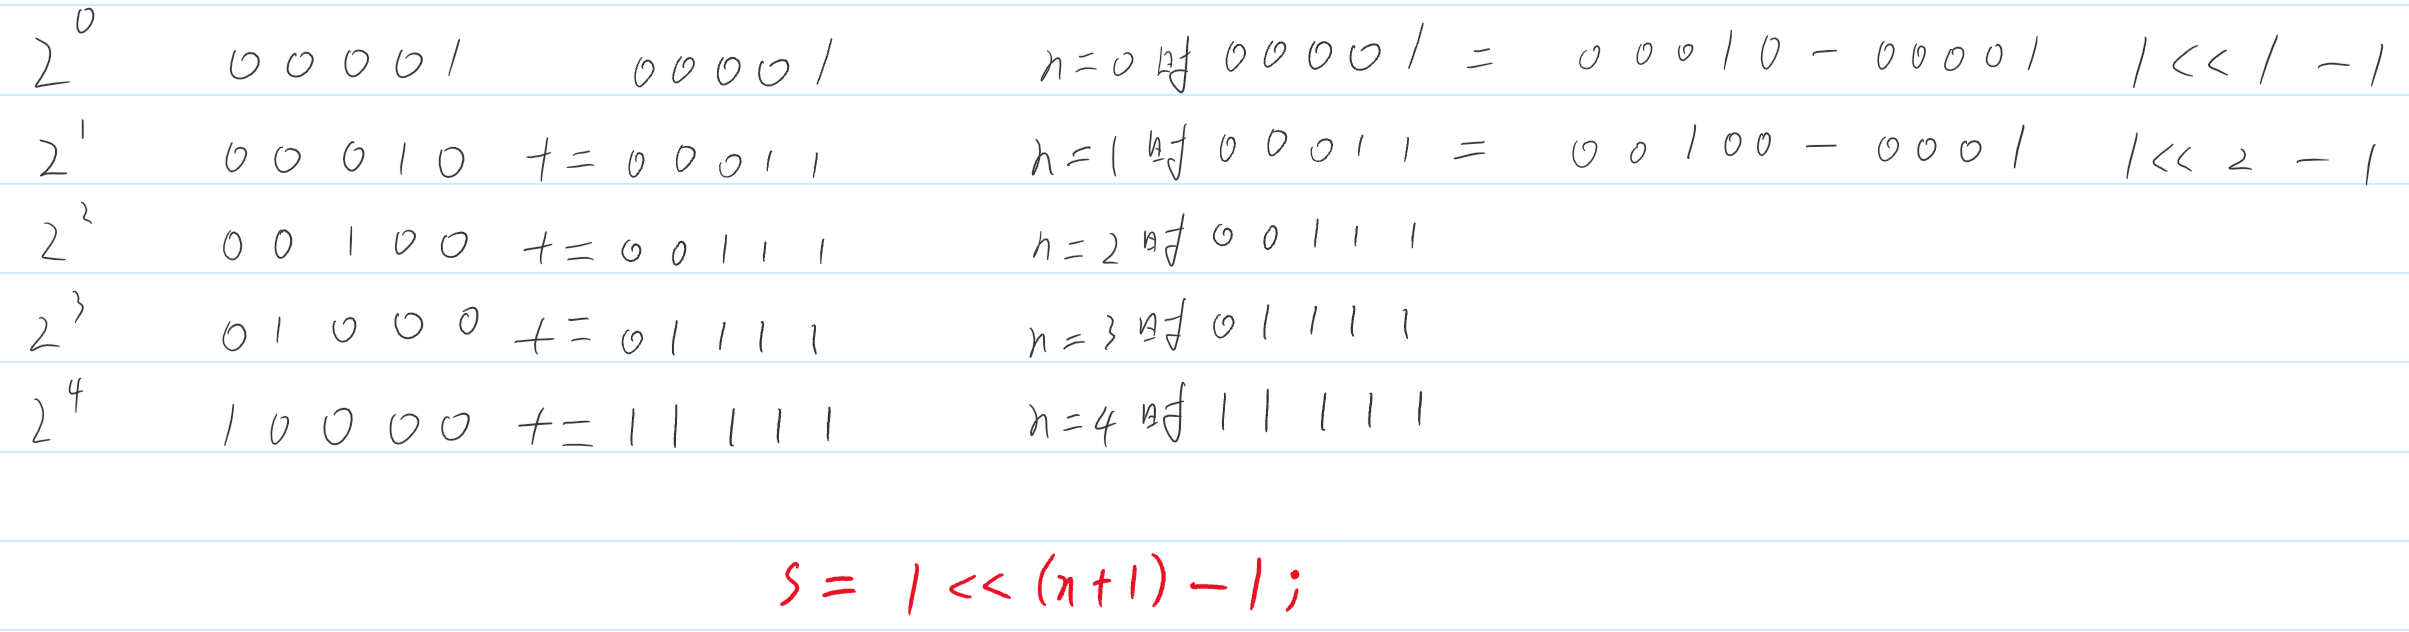 2^0 00001 00001 n=0时 00001 = 00010 - 00001 1<<1 - 1
2^1 00010 += 00011 n=1时 00011 = 00100 - 0001 1<<2 - 1
2^2 00100 += 00111 n=2时 00111
2^3 01000 += 01111 n=3时 01111
2^4 10000 += 11111 n=4时 11111
s = 1 << (n+1) - 1;